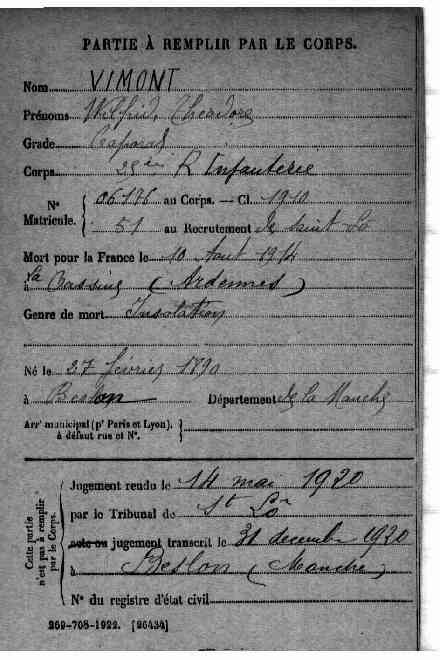 PARTIE À REMPLIR PAR LE CORPS.
Nom VIMONT
Prénoms Wilfrid, Theodore
Grade Caporal
Corps 25 ème R Infanterie
N° Matricule. { 06176 au Corps. — Cl. 1910
51 au Recrutement de Saint Lo
Mort pour la France le 10 Aout 1914
à La Sassine (Ardennes)
Genre de mort Insolation
Né le 27 février 1890
à Beslon Département de la Manche
Arr' municipal (p' Paris et Lyon),
à défaut rue et N°.
Cette partie n'est pas à remplir par le Corps.
Jugement rendu le 14 mai 1920
par le Tribunal de St Lo
acte ou jugement transcrit le 31 decembre 1920
à Beslon (Manche)
N° du registre d'état civil
269-708-1922. [26434]